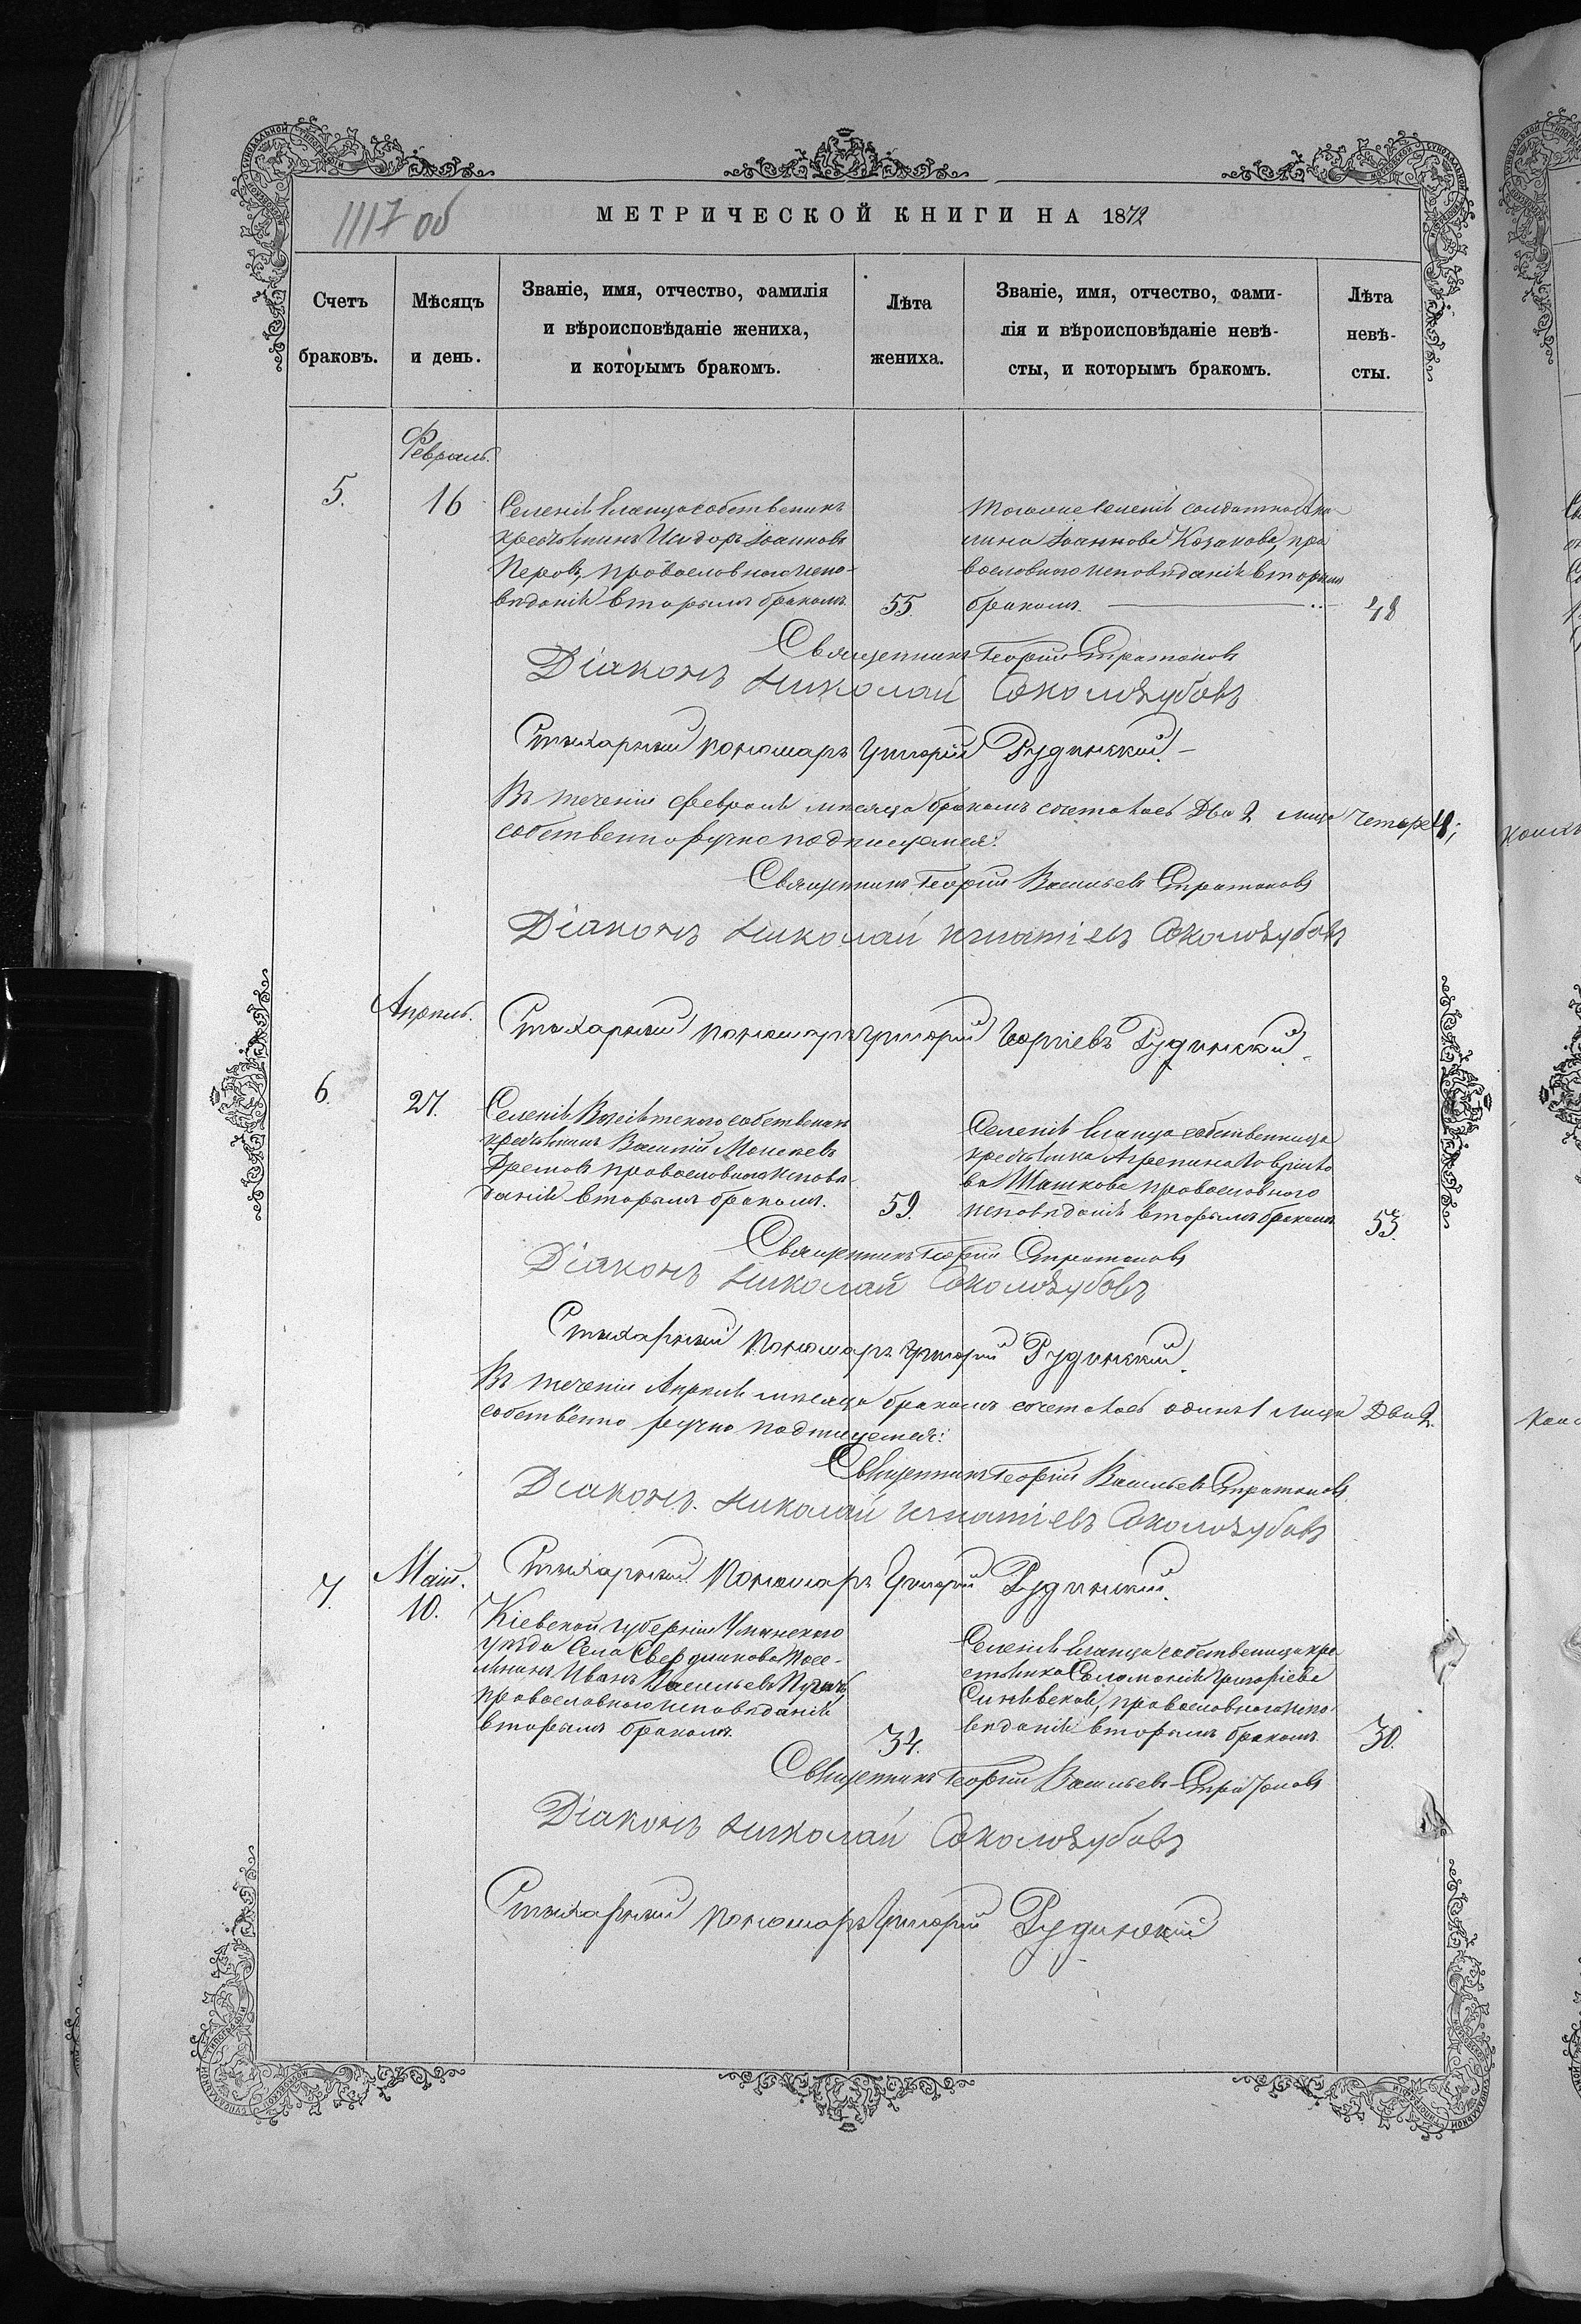 1117 об
МЕТРИЧЕСКОЙ КНИГИ НА 1872
Счетъ браковъ.
Мѣсяцъ и день.
Званіе, имя, отчество, фамилія
и вѣроисповѣданіе жениха,
и которымъ бракомъ.
Лѣта жениха.
Званіе, имя, отчество, фами-
лія и вѣроисповѣданіе невѣ-
сты, и которымъ бракомъ.
Лѣта невѣ-
сты.
Февраль.
5.
16
Селенія собственикъ
крестьянинъ Исидоръ Іоанновъ
Перовъ, православнаго испо-
вѣданія вторымъ бракомъ
55.
Тогоже селенія солдатка
Іоаннова Козакова, пра
вославнаго исповѣданія вторымъ
бракомъ.
48
Священникъ Георгій Стратоновъ
Діаконъ Николай Соколозубовъ
Стихарный пономарь Григорій Рудинскій.
Въ теченіи февраля мѣсяца бракомъ сочеталось два 2 лица четыре 4;
собственноручно подписуемся:
Священникъ Георгій Васильевъ Стратоновъ
Діаконъ Николай Игнатіевъ Соколозубовъ
Апрѣль.
Стихарный пономарь Григорій Рудинскій.
6.
27.
Селенія собственикъ
крестьянинъ Василій Моисеевъ
православнаго исповѣ-
данія вторымъ бракомъ.
59.
Селенія собственница
крестьянка Агрепина
ва Шашкова православнаго
исповѣданія вторымъ бракомъ
53.
Священникъ Георгій Стратоновъ
Діаконъ Николай Соколозубовъ
Стихарный пономарь Григорій Рудинскій.
Въ теченіи Апрѣля мѣсяца бракомъ сочеталось одинъ 1 лица два 2.
собственно ручно подписуемся:
Священникъ Георгій Васильевъ Стратоновъ
Діаконъ Николай Игнатіевъ Соколозубовъ
Стихарный пономарь Григорій Рудинскій.
Май.
7.
10.
Кіевской губерніи Уманскаго
уѣзда Села Свердликова посе-
лянинъ Иванъ Васильевъ
православнаго исповѣданія
вторымъ бракомъ.
34.
Селенія собственица кре
стьянка Соломонія Григоріева
православнаго испо-
вѣданія вторымъ бракомъ
30.
Священникъ Георгій Васильевъ Стратоновъ
Діаконъ Николай Соколозубовъ
Стихарный пономарь Григорій Рудинскій